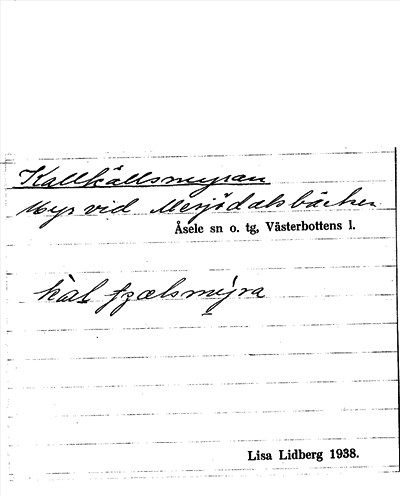 Kallkällsmyran
Myr vid Mesjödalsbäcken
Åsele sn o. tg, Västerbottens l.
Lisa Lidberg 1938.